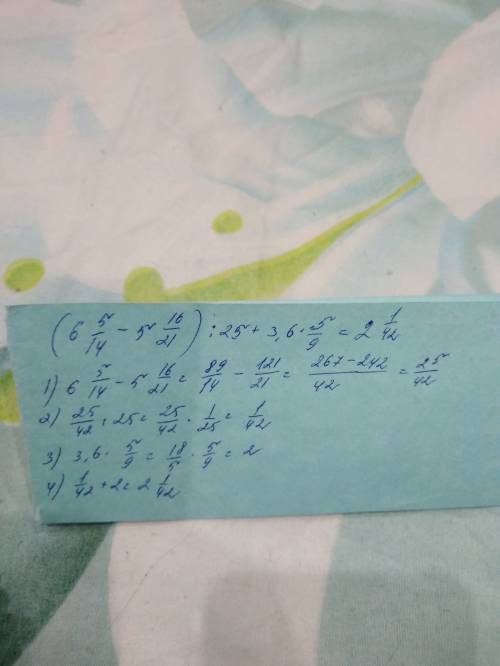 (6 5/14 - 5 16/21) : 25 + 3,6 · 5/9 = 2 1/42
1) 6 5/14 - 5 16/21 = 89/14 - 121/21 = 267-242/42 = 25/42
2) 25/42 : 25 = 25/42 · 1/25 = 1/42
3) 3,6 · 5/9 = 18/5 · 5/9 = 2
4) 1/42 + 2 = 2 1/42